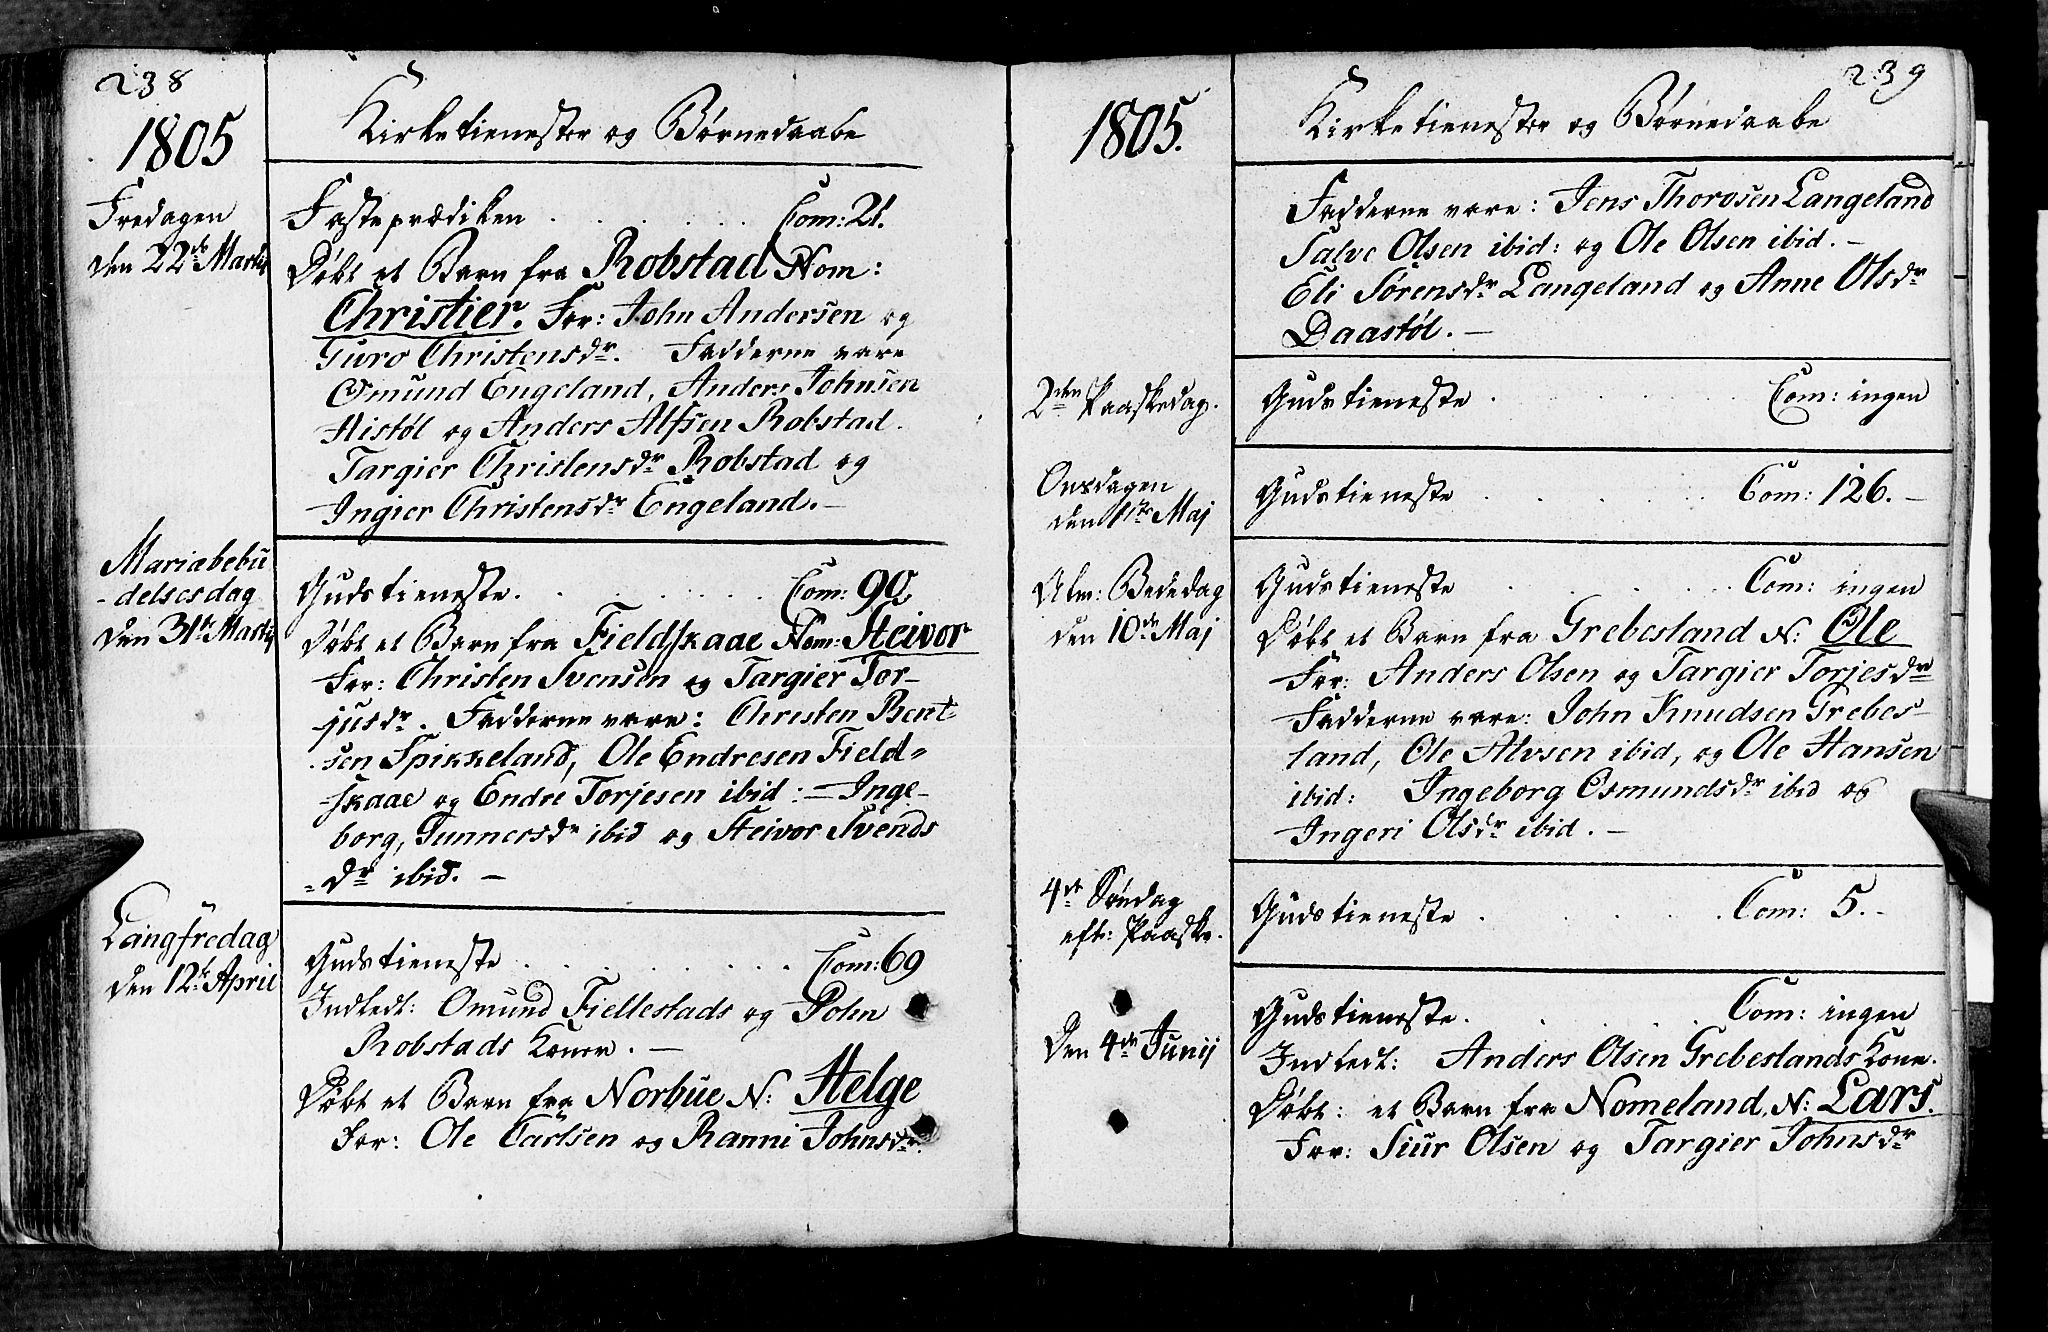 238
1805
Kirketienester og Børnedaabe
Fredagen
den 22de Martii
Fasteprædiken . . . . . Com: 21.
Døbt et Barn fra Robstad Nom:
Christier. For: John Andersen og
Guro Christensdr. Fadderne vare
Osmund Engeland, Anders Johnsen
Histøl og Anders Alfsen Robstad.
Targier Christensdr Robstad og
Ingier Christensdr Engeland. –
Mariæbebu
-delsesdag
den 31te Martii
Gudstieneste . . . . . . Com: 90
Døbt et Barn fra Fieldskaae Nom: Steivor
For: Christen Svensen og Targier Tor-
jusdr. Fadderne vare: Christen Bent
sen Spikkeland, Ole Endresen Field=
-skaae og Endre Torjesen ibid: – Inge-
borg, Gunnersdr ibid og Steivor Svends
=dr ibid. –
Langfredag
den 12te April
Gudstieneste . . . . . . . . Com: 69
Indledt: Omund Fiellestads og John
Robstads Koner. –
Døbt et Barn fra Norbue N: Helge
For: Ole Carlsen og Ranni Johnsdr.
239
1805.
Kirketienester og Børnedaabe
Fadderne vare: Jens Thorosen Langeland
Salve Olsen ibid: og Ole Olsen ibid. –
Eli Sørensdr Langeland og Anne Olsdr
Daastøl. –
2den Paaskedag.
Gudstieneste . . . . . . Com: ingen
Onsdagen
den 1ste Maj
Gudstieneste . . . . . Com: 126. –
Alm: Bededag
den 10de Maj
Gudstieneste . . . . . Com: ingen
Døbt et Barn fra Grebesland N: Ole
For: Anders Olsen og Targier Torjesdr
Fadderne vare: John Knudsen Grebes-
land, Ole Alvsen ibid, og Ole Hansen
ibid: Ingeborg Osmundsdr ibid og
Ingeri Olsdr ibid. –
4de Søndag
eft: Paaske.
Gudstieneste . . . . . Com: 5. –
Den 4de Junij
Gudstieneste. . . . . Com: ingen
Indledt: Anders Olsen Grebeslands Kone.
Døbt: et Barn fra Nomeland, N: Lars.
For: Siur Olsen og Targier Johnsdr